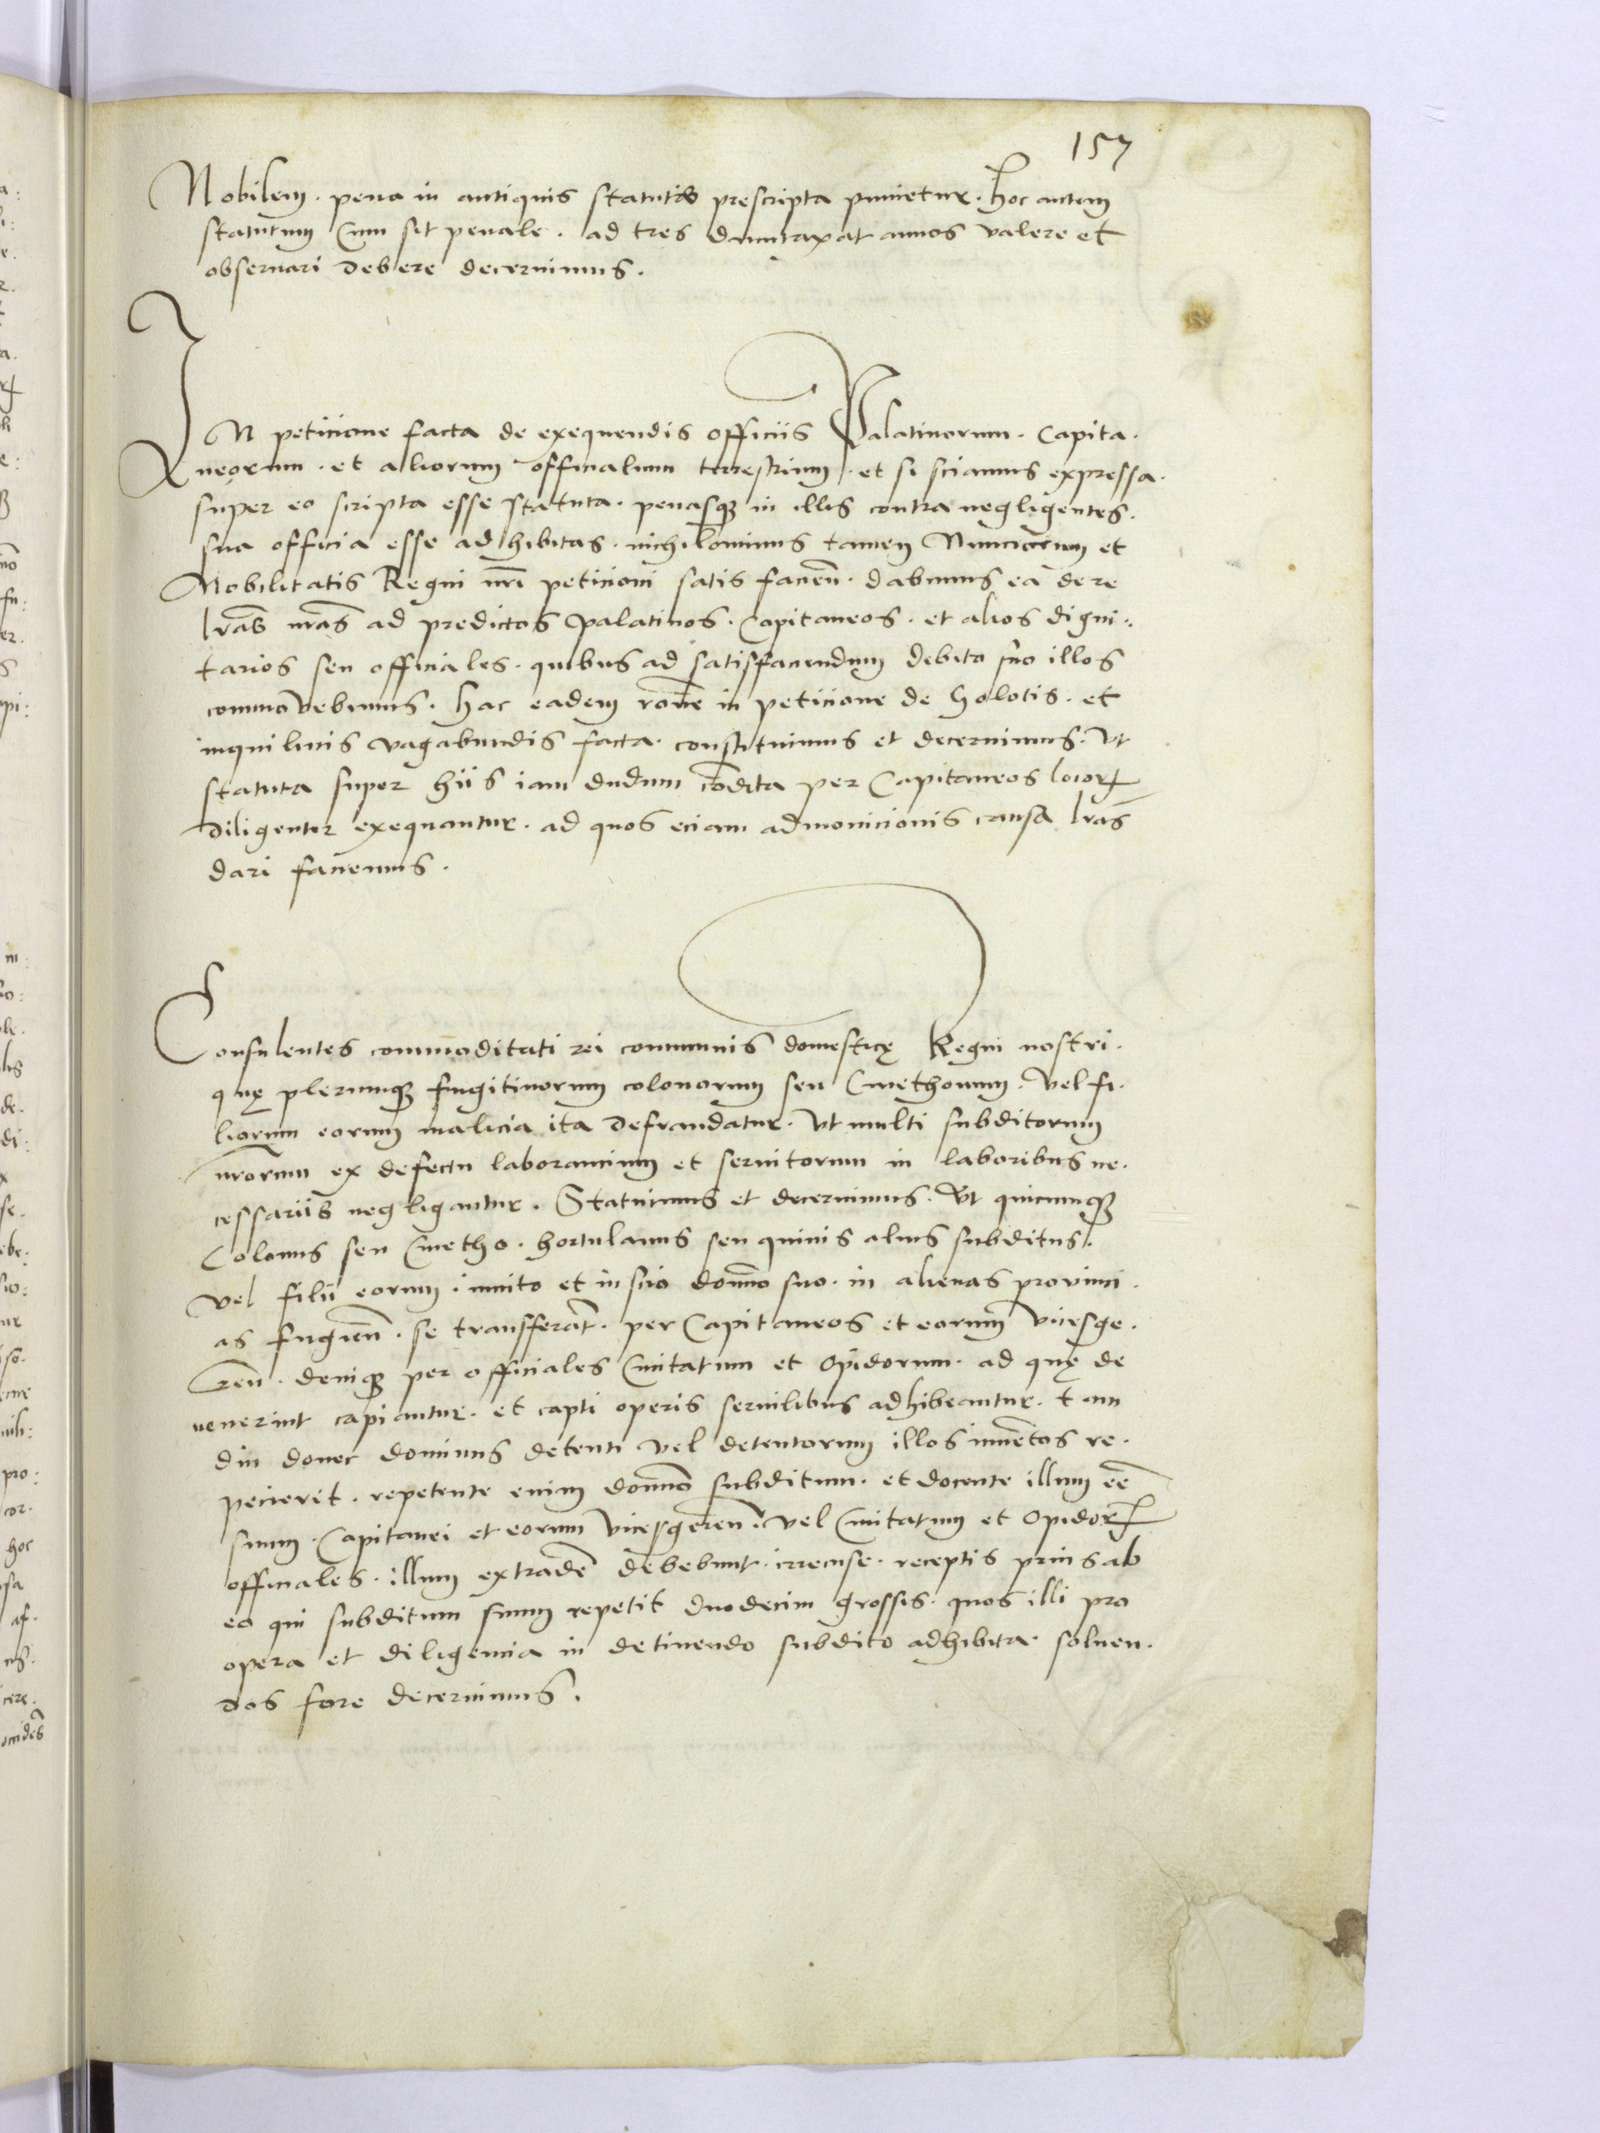 157
Nobilem. pena in antiquis statutis prescripta punietur. Hoc autem
statutum Cum sit penale. ad tres dumtaxat annos valere et
observari debere decernimus.
IN peticione facta de exequendis officiis Palatinorum. Capita.
neorum. et aliorum officialium terrestrium. et si sciamus expressa.
super eo scripta esse statuta. penasq3 in illis contra negligentes.
sua officia esse adhibitas. nichilominus tamen Nuncciorum et
Nobilitatis Regni nr̃i peticioni satis facien̄. dabimus ea de re
lrãs nrãs ad predictos palatinos. Capitaneos. et alios digni:
tarios seu officiales. quibus ad satisfaciendum debito suo illos
commovebimus. Hac eadem rõne in peticione de Holotis. et
inquilinis vagabundis facta. constituimus et decernimus. Vt
statuta super hiis iam dudum cõdita per Capitaneos locorꝝ
diligenter exequantur. ad quos eciam admonicionis causa lrãs
dari faciemus.
Consulentes commoditati rei communis domesticę Regni nostri.
quę plerumq3 fugitivorum colonorum seu Cmethonum. Vel fi.
liorum eorum malicia ita defraudatur. Vt multi subditorum
nrõrum ex defectu laborancium et servitorum in laboribus ne.
cessariis negligantur. Statuimus et decernimus. Vt quicumq3
Colonus seu Cmetho. hortulanus seu quivis alius subditus.
vel filii eorum. invito et inscio domĩo suo. in alienas provinci.
as fugien̄. se transferãt. per Capitaneos et eorum vicesge.
ren̄. deniq3 per officiales Civitatum et Opidorum. ad quę de
venerint capiantur. et capti operis servilibus adhibeantur. tam
diu donec dominus detenti vel detentorum illos inventos re.
pecierit. repetente enim domĩo subditum. et docente illum eē
suum. Capitanei et eorum vicesgeren̄. vel Civitatum et Opidorꝝ
officiales. illum extradē debebunt. irrecuse. receptis prius ab
eo qui subditum suum repetit duodecim grossis. quos illi pro
opera et diligencia in detinendo subdito adhibita. solven.
dos fore decernimus.